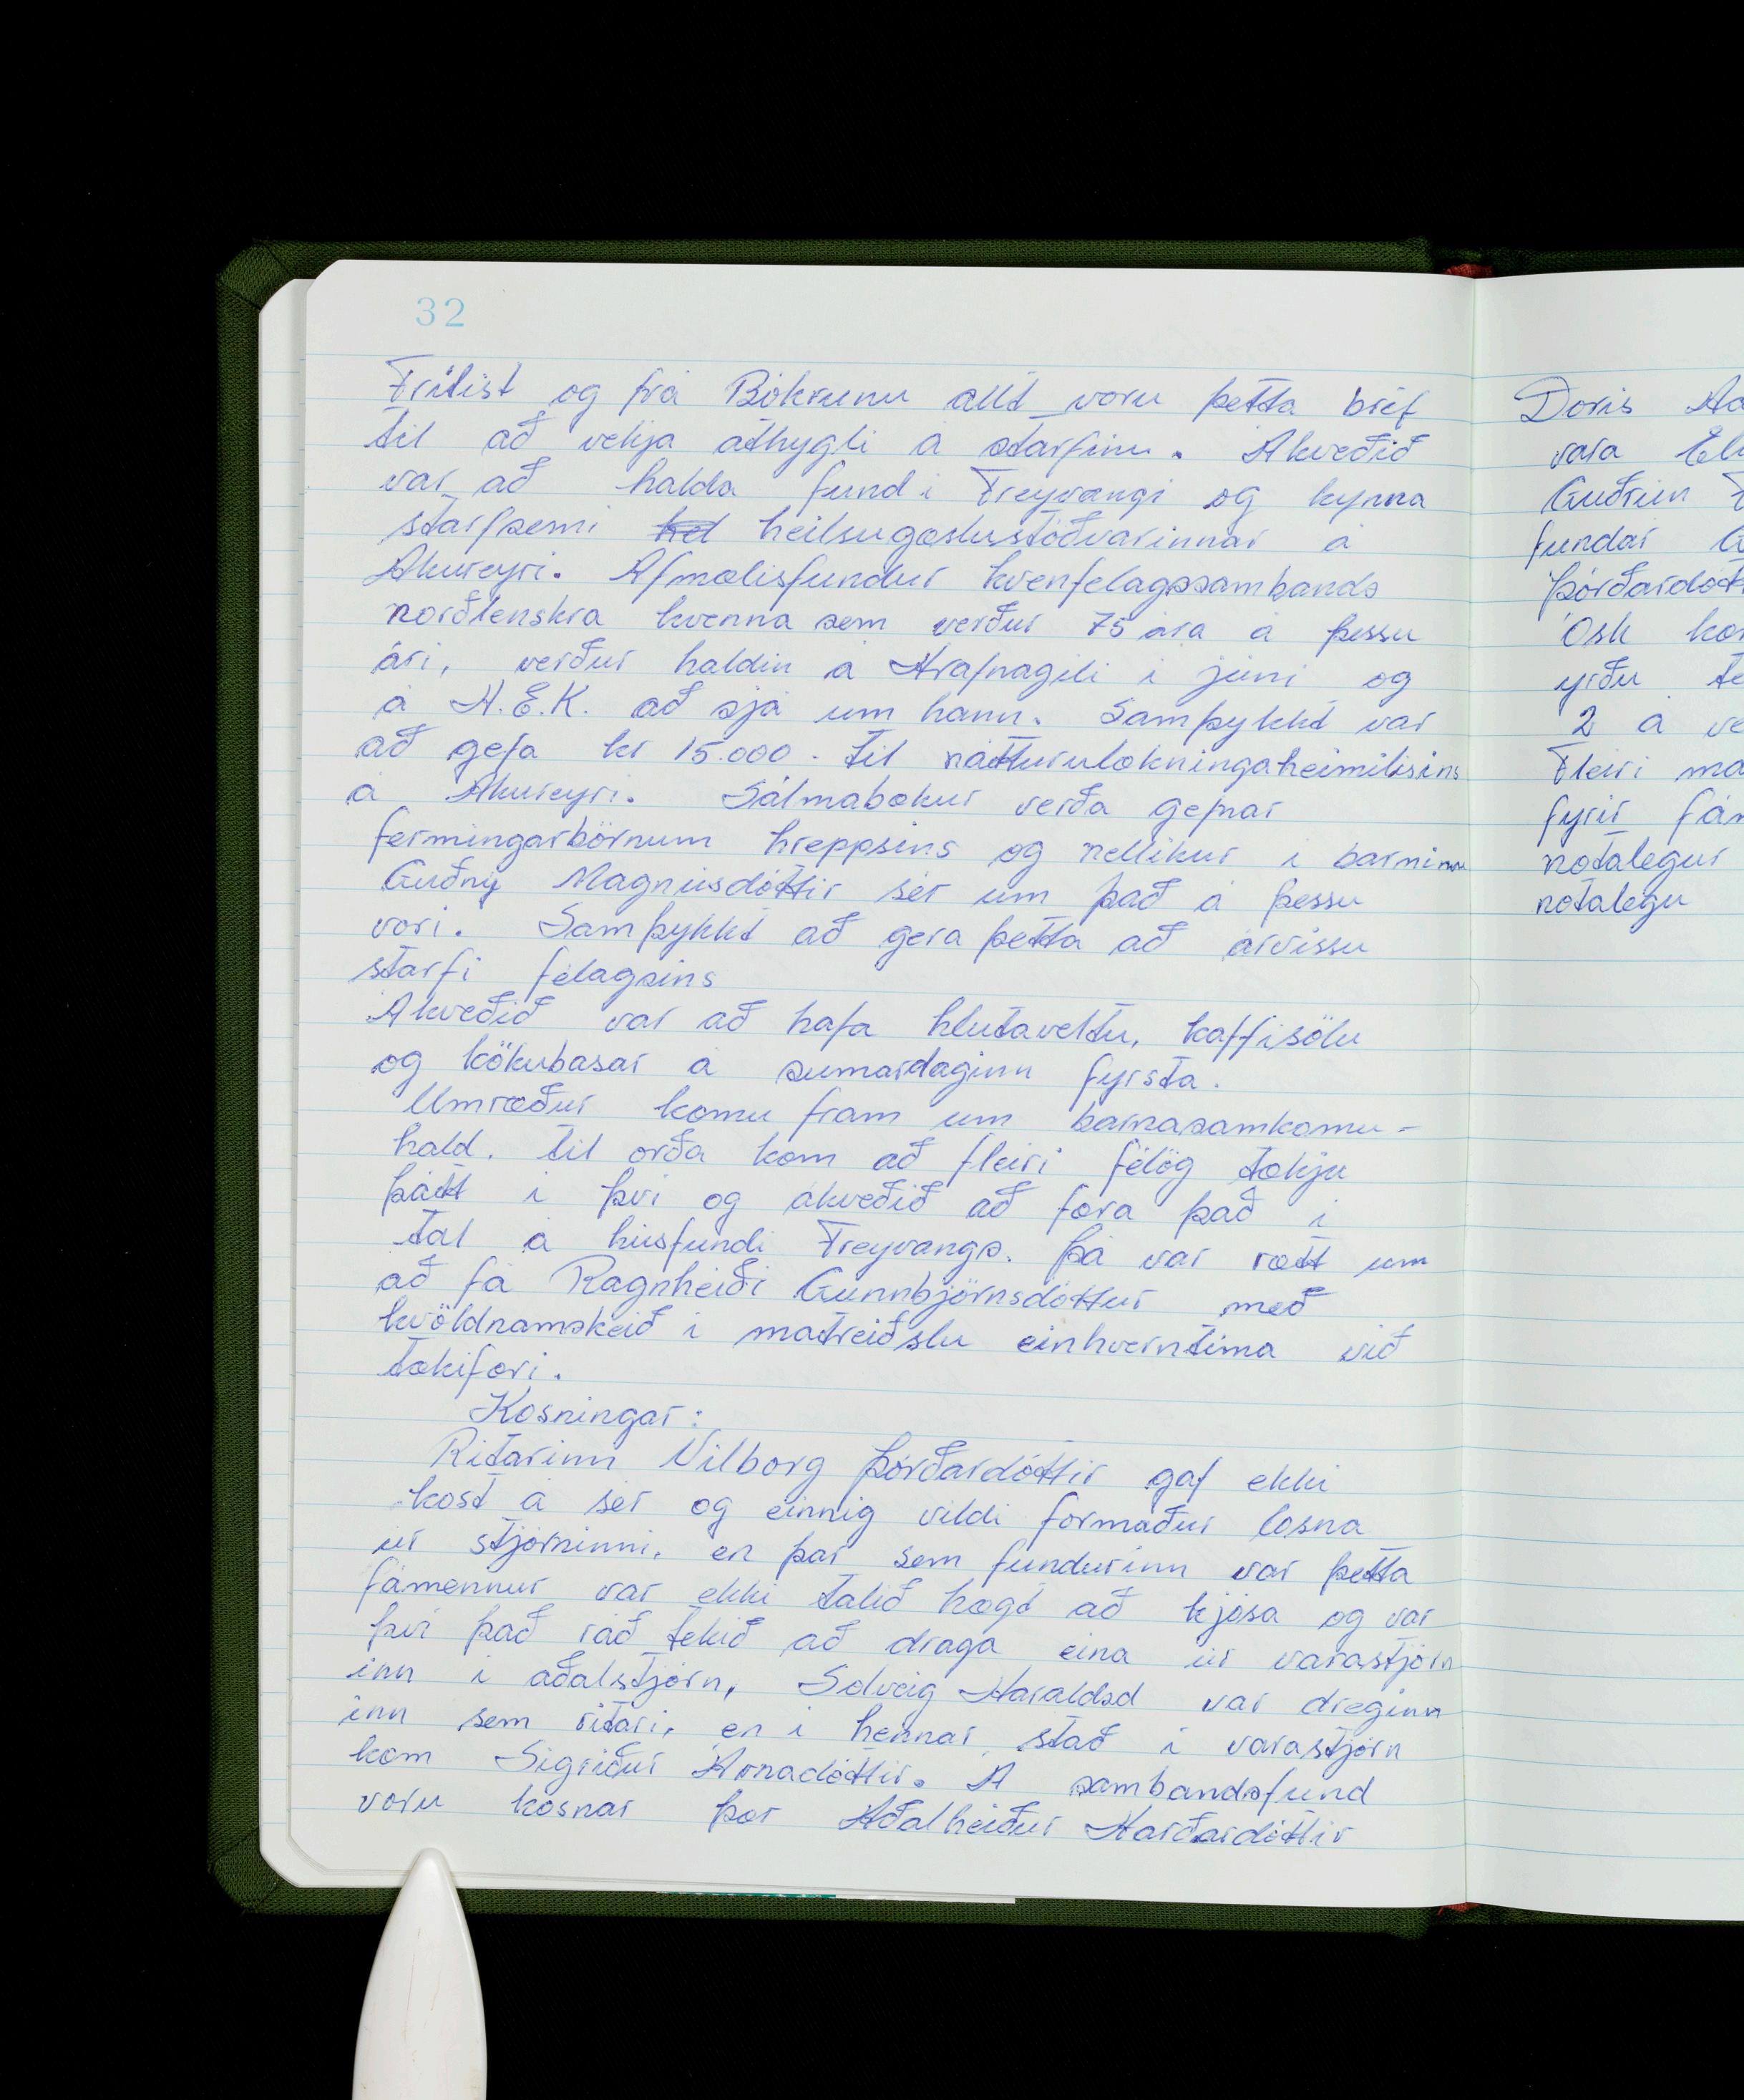 32
Frílist og frá Bókrunu allt voru þetta bréf
til að vekja athygli á starfinu. Ákveðið
var að halda fund í Freyvangi og kynna
starfsemi heilsugæslustöðvarinnar á
Akureyri. Afmælisfundur kvenfélagssambands
norðlenskra kvenna sem verður 75 ára á þessu
ári, verður haldin á Hrafnagili í júní og
á H.E.K. að sjá um hann. Samþykkt var
að gefa kr 15.000. til náttúrulækningaheimilisins
á Akureyri. Sálmabækur verða gefnar
fermingarbörnum hreppsins og nellikur í barminn
Guðný Magnúsdóttir sér um það á þessu
vori. Samþykkt að gera þetta að árvissu
starfi félagsins
Ákveðið var að hafa hlutaveltu, kaffisölu
og kökubasar á sumardaginn fyrsta.
Umræður komu fram um barnasamkomu-
hald. til orða kom að fleiri félög tækju
þátt í því og ákveðið að færa það í
tal á húsfundi Freyvangs. Þá var rætt um
að fá Ragnheiði Gunnbjörnsdóttur með
kvöldnamskeið í matreiðslu einhverntíma við
tækifæri.
Kosningar:
Ritarinn Vilborg Þórðardóttir gaf ekki
kost á sér og einnig vildi formaður losna
úr stjórninni, en þar sem fundurinn var þetta
fámennur var ekki talið hægt að kjósa og var
því það ráð tekið að draga eina úr varastjórn
inn í aðalstjórn, Solveig Haraldsd var dreginn
inn sem ritari, en í hennar stað í varastjórn
kom Sigríður Árnadóttir. Á sambandsfund
voru kosnar þær Aðalheiður Harðardóttir
Doris
vara
Guðrún
fundar
Ósk
yrðu
2 á
Fleiri
fyrir
notalegur
notalegu